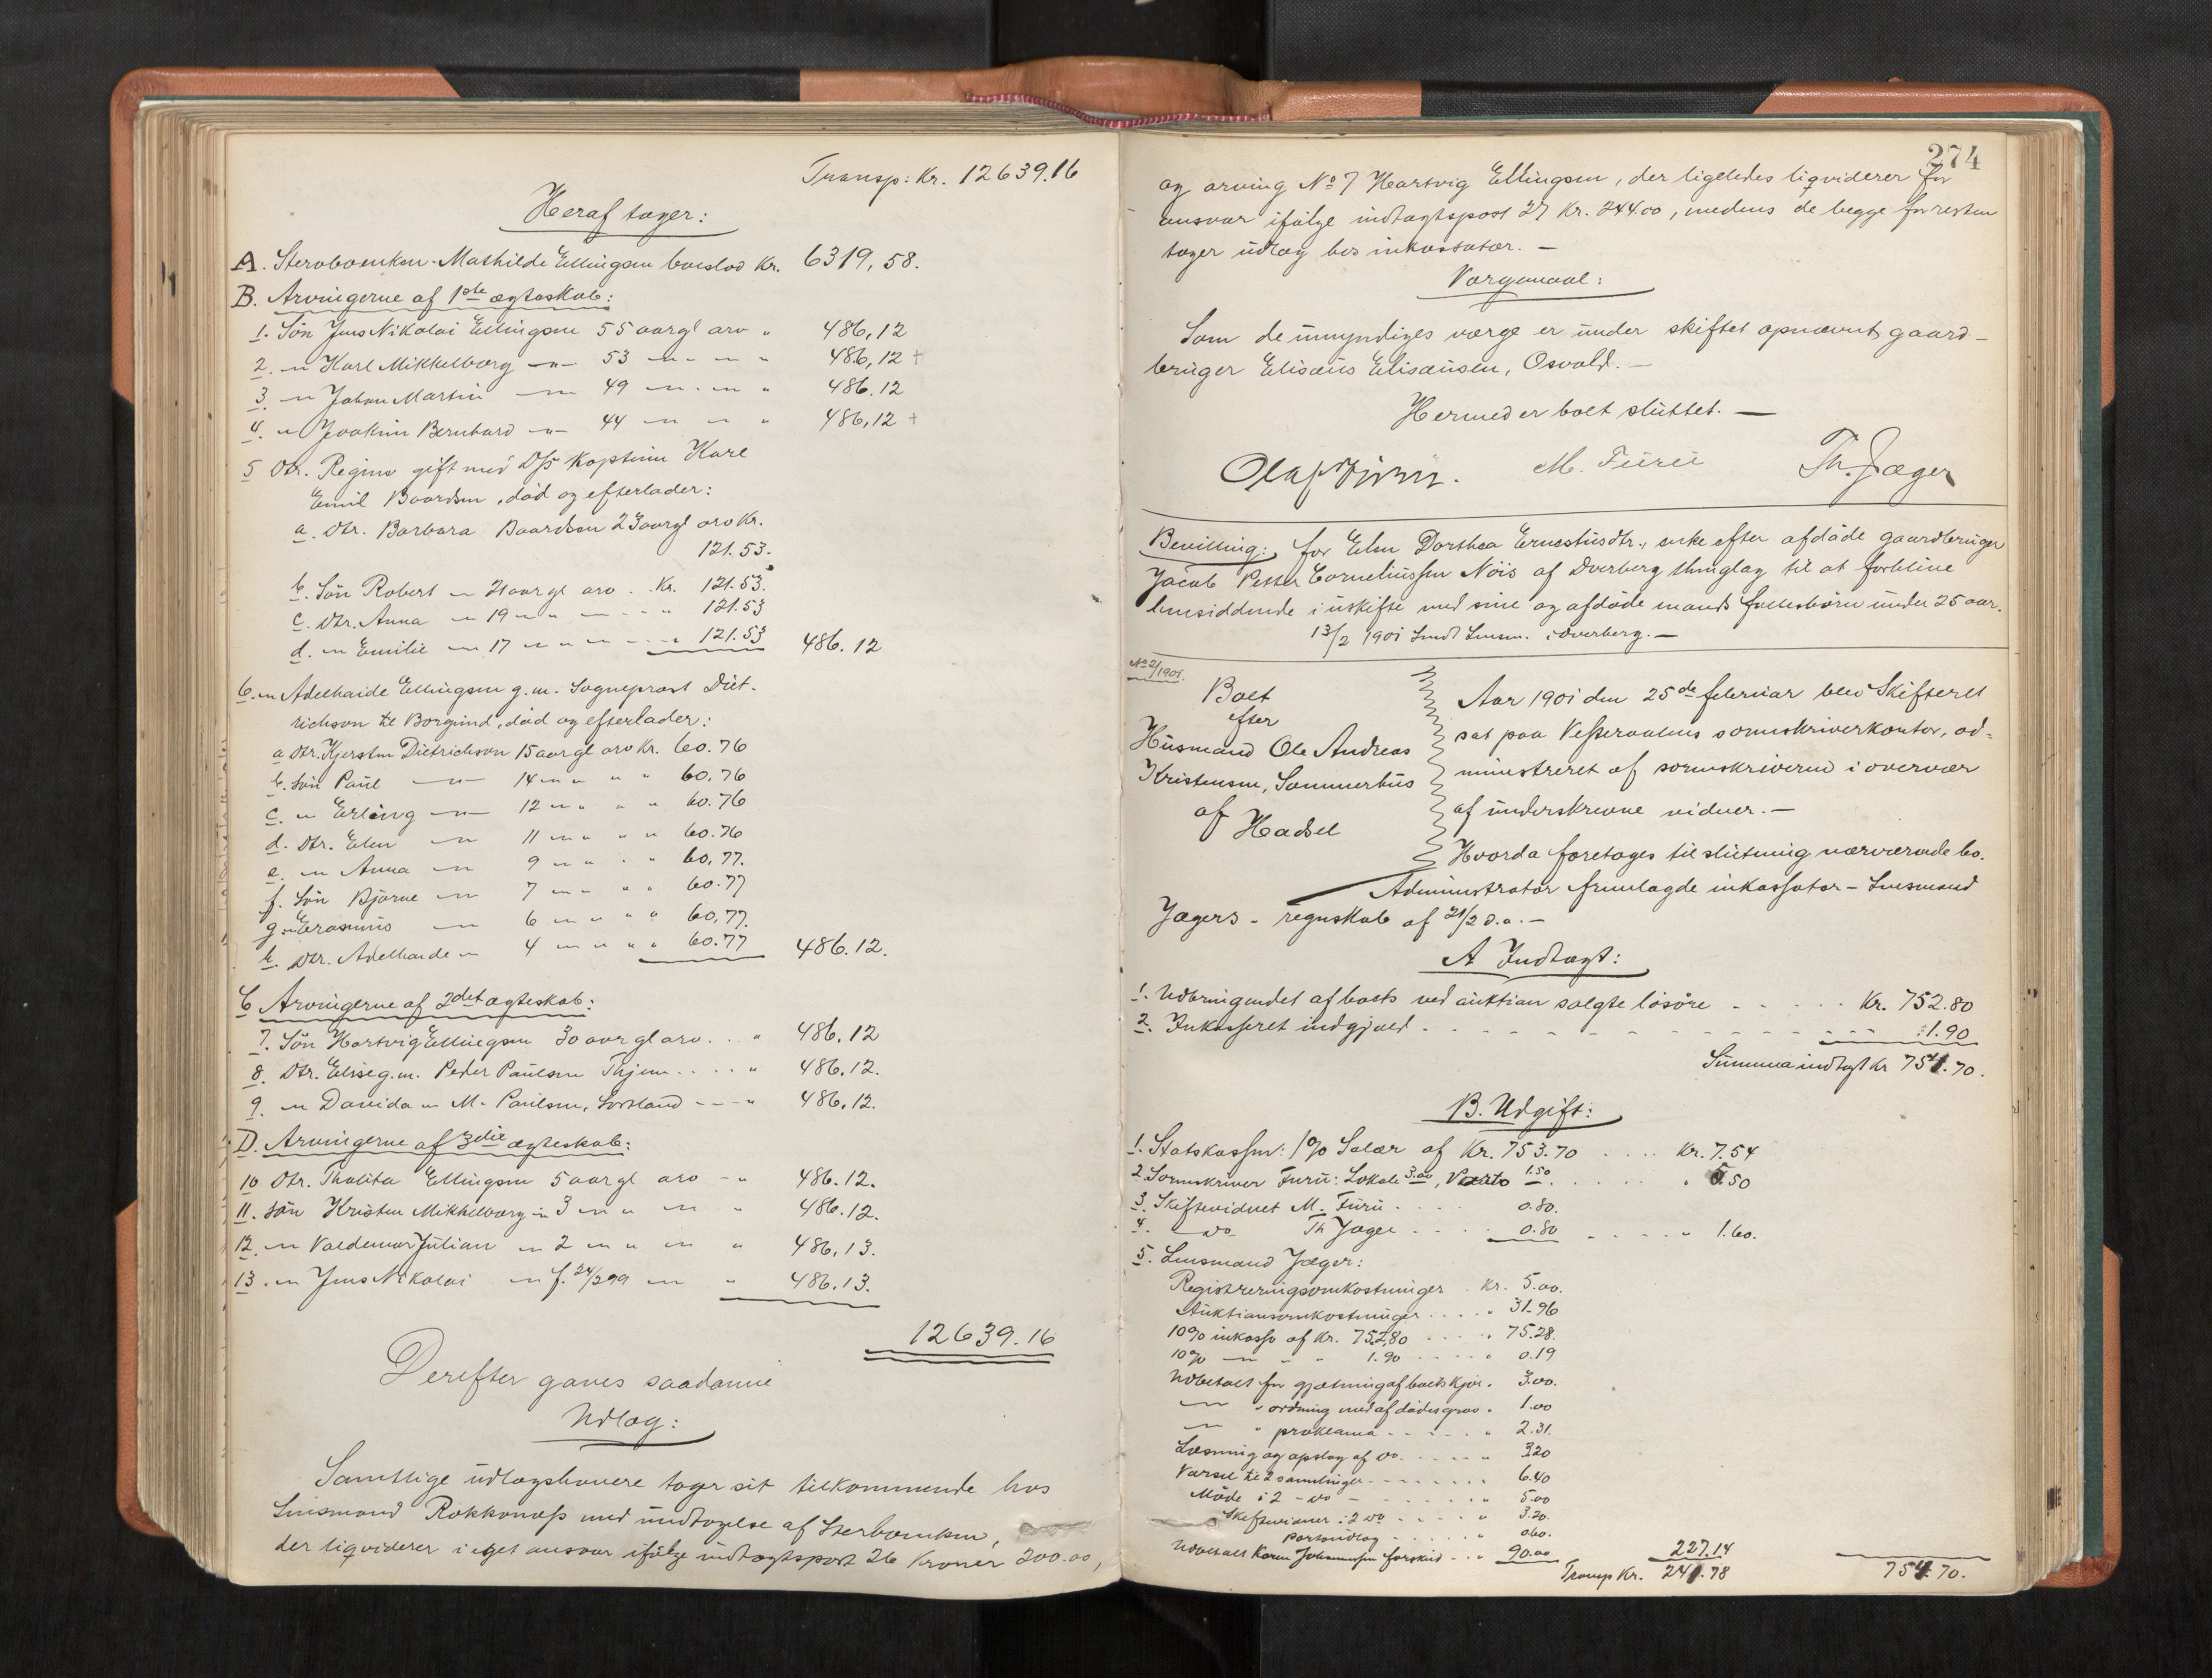 Transp: Kr. 12639.16
Heraf tager:
A. Sterboenken Mathilde Ellingsen boeslod Kr. 6319,58.
B. Arvingerne af 1ste ægteskab:
1. Sön Jens Nikolai Ellingsen 55 aar gl arv " 486,12
2. -"- Karl Mikkelborg -"- 53 -"- -"- " 486,12 +
3. -"- Johan Martin -"- 49 -"- -"- " 486.12
4. -"- Joakim Bernhard -"- 44 -"- -"- " 486,12 +
5 Dtr. Regine gift med D/S Kaptein Karl
Emil Baardsen, död og efterlader:
a. Dtr. Barbara Baardsen 23 aar gl arv Kr.
121.53.
b. Sön Robert -"- 21 aar gl arv . Kr. 121.53.
c. Dtr. Anna -"- 19 -"- " -"- - - " 121.53
d. -"- Emilie -"- 17 -"- " -"- - - " 121.53 486.12
6. -"- Adelhaide Ellingsen g.m. Sogneprest Diet-
richson til Borgund, död og efterlader:
a Dtr. Kjersten Dietrichson 15 aar gl arv Kr. 60.76
b. Sön Paul -"- 14 -"- " " " 60.76
c. -"- Erling -"- 12 -"- " " " 60.76
d. Dtr. Elen -"- 11 -"- " " " 60.76
e. -"- Anna -"- 9 -"- " " " 60.77.
f. Sön Bjarne -"- 7 -"- " " " 60.77
g. -"- Erasmus -"- 6 -"- " " " 60.77.
h. Dtr. Adelhaide -"- 4 -"- " " " 60.77 486.12.
C Arvingerne af 2det ægteskab:
7. Sön Hartvig Ellingsen 30 aar gl arv . . . " 486.12
8. Dtr. Elise g.m. Peder Paulsen Thjem . . . . " 486.12.
9. -"- Davida -"- M. Paulsen, Sortland - - - " 486.12.
D. Arvingerne af 3die ægteskab:
10 Dtr. Thalita Ellingsen 5 aar gl arv - " 486.12.
11. Sön Kristen Mikkelborg -"- 3 -"- " -"- " 486.12.
12. -"- Valdemar Julian -"- 2 -"- " -"- " 486.13.
13. -"- Jens Nikolai -"- f. 24/2 99 -"- " 486.13.
12639.16
Derefter gaves saadanne
Udlæg:
Samtlige udlægshavere tager sit tilkommende hos
Lensmand Rokkonæss med undtagelse af Sterboenken,
der liqviderer i eget ansvar ifölge indtægtspost 26 Kroner 200.00,
274
og arving No 7 Hartvig Ellingsen, der ligeledes liqviderer for
ansvar ifölge indtægtspost 27 Kr. 244.00, medens de begge forresten
tager udlæg hos inkassator. -
Værgemaal:
Som de umyndiges værge er under skiftet opnævnt gaard-
bruger Elisæus Elisæusen, Osvold. -
Hermed er boet sluttet. -
M. Furu Th. Jæger
Bevilling: for Elen Dorthea Ernestusdtr., enke efter afdöde gaardbruger
Jacob Petter Corneliussen Nöis af Dverberg thinglag til at forblive
hensiddende i uskifte med sine og afdöde mands fællesbörn under 25 aar.
13/2 1901 Sendt Lensm. i Dverberg. -
No 2/1901.
Boet
efter
Husmand Ole Andreas
Kristensen, Sommerhus
af Hadsel
Aar 1901 den 25de februar blev Skifteret
sat paa Vesteraalens sorenskriverkontor, ad-
ministreret af sorenskriveren i overvær
af underskrevne vidner. -
Hvorda foretoges til slutning nærværende bo.
Administrator fremlagde inkassator - Lensmand
Jægers - regnskab af 21/2 d.a. -
A Indtægt:
1. Udbringendet af boets ved auktion solgte lösöre - - - - - Kr. 752.80
2. Inkasseret indgjæld - - - - - - - - - - - - - - " 1.90
Summa indtægt Kr 754.70.
B. Udgift:
1. Statskassen: 1% Salær af Kr. 753.70 . . . . Kr. 7.54
2. Sorenskriver Furu: Lokale 3.00, Porto 1.50 . . . . . . " 5.50
3. Skiftevidnet M. Furu . . . . 0.80.
4. do. Th Jæger . . . . 0.80 - - - - - " 1.60.
5. Lensmand Jæger:
Registreringsomkostninger . Kr. 5.00.
Auktionsomkostninger . . . . " 31.96
10% inkasso af Kr. 752,80 . . . . " 75.28.
10% -"- " " 1.90 . . . . " 0.19
Udbetalt for gjætning af boets kjör. " 3.00.
-"- " ordning med afdödes grav . " 1.00
-"- " proklama - - - - - - " 2.31.
Læsning og opslag af do. - - - - - " 3.20
Varsel til 2 samlinger - - - - - - - 6.40
Möde i 2 - do - - - - - - - " 5.00
Skiftevidner i 2 do - - - - - " 3.20.
Portoudlæg - - - - - - " 0.60.
Udbetalt Karen Johannessen forskud - - " 90.00 227.14
Transp Kr. 241.78 754.70.